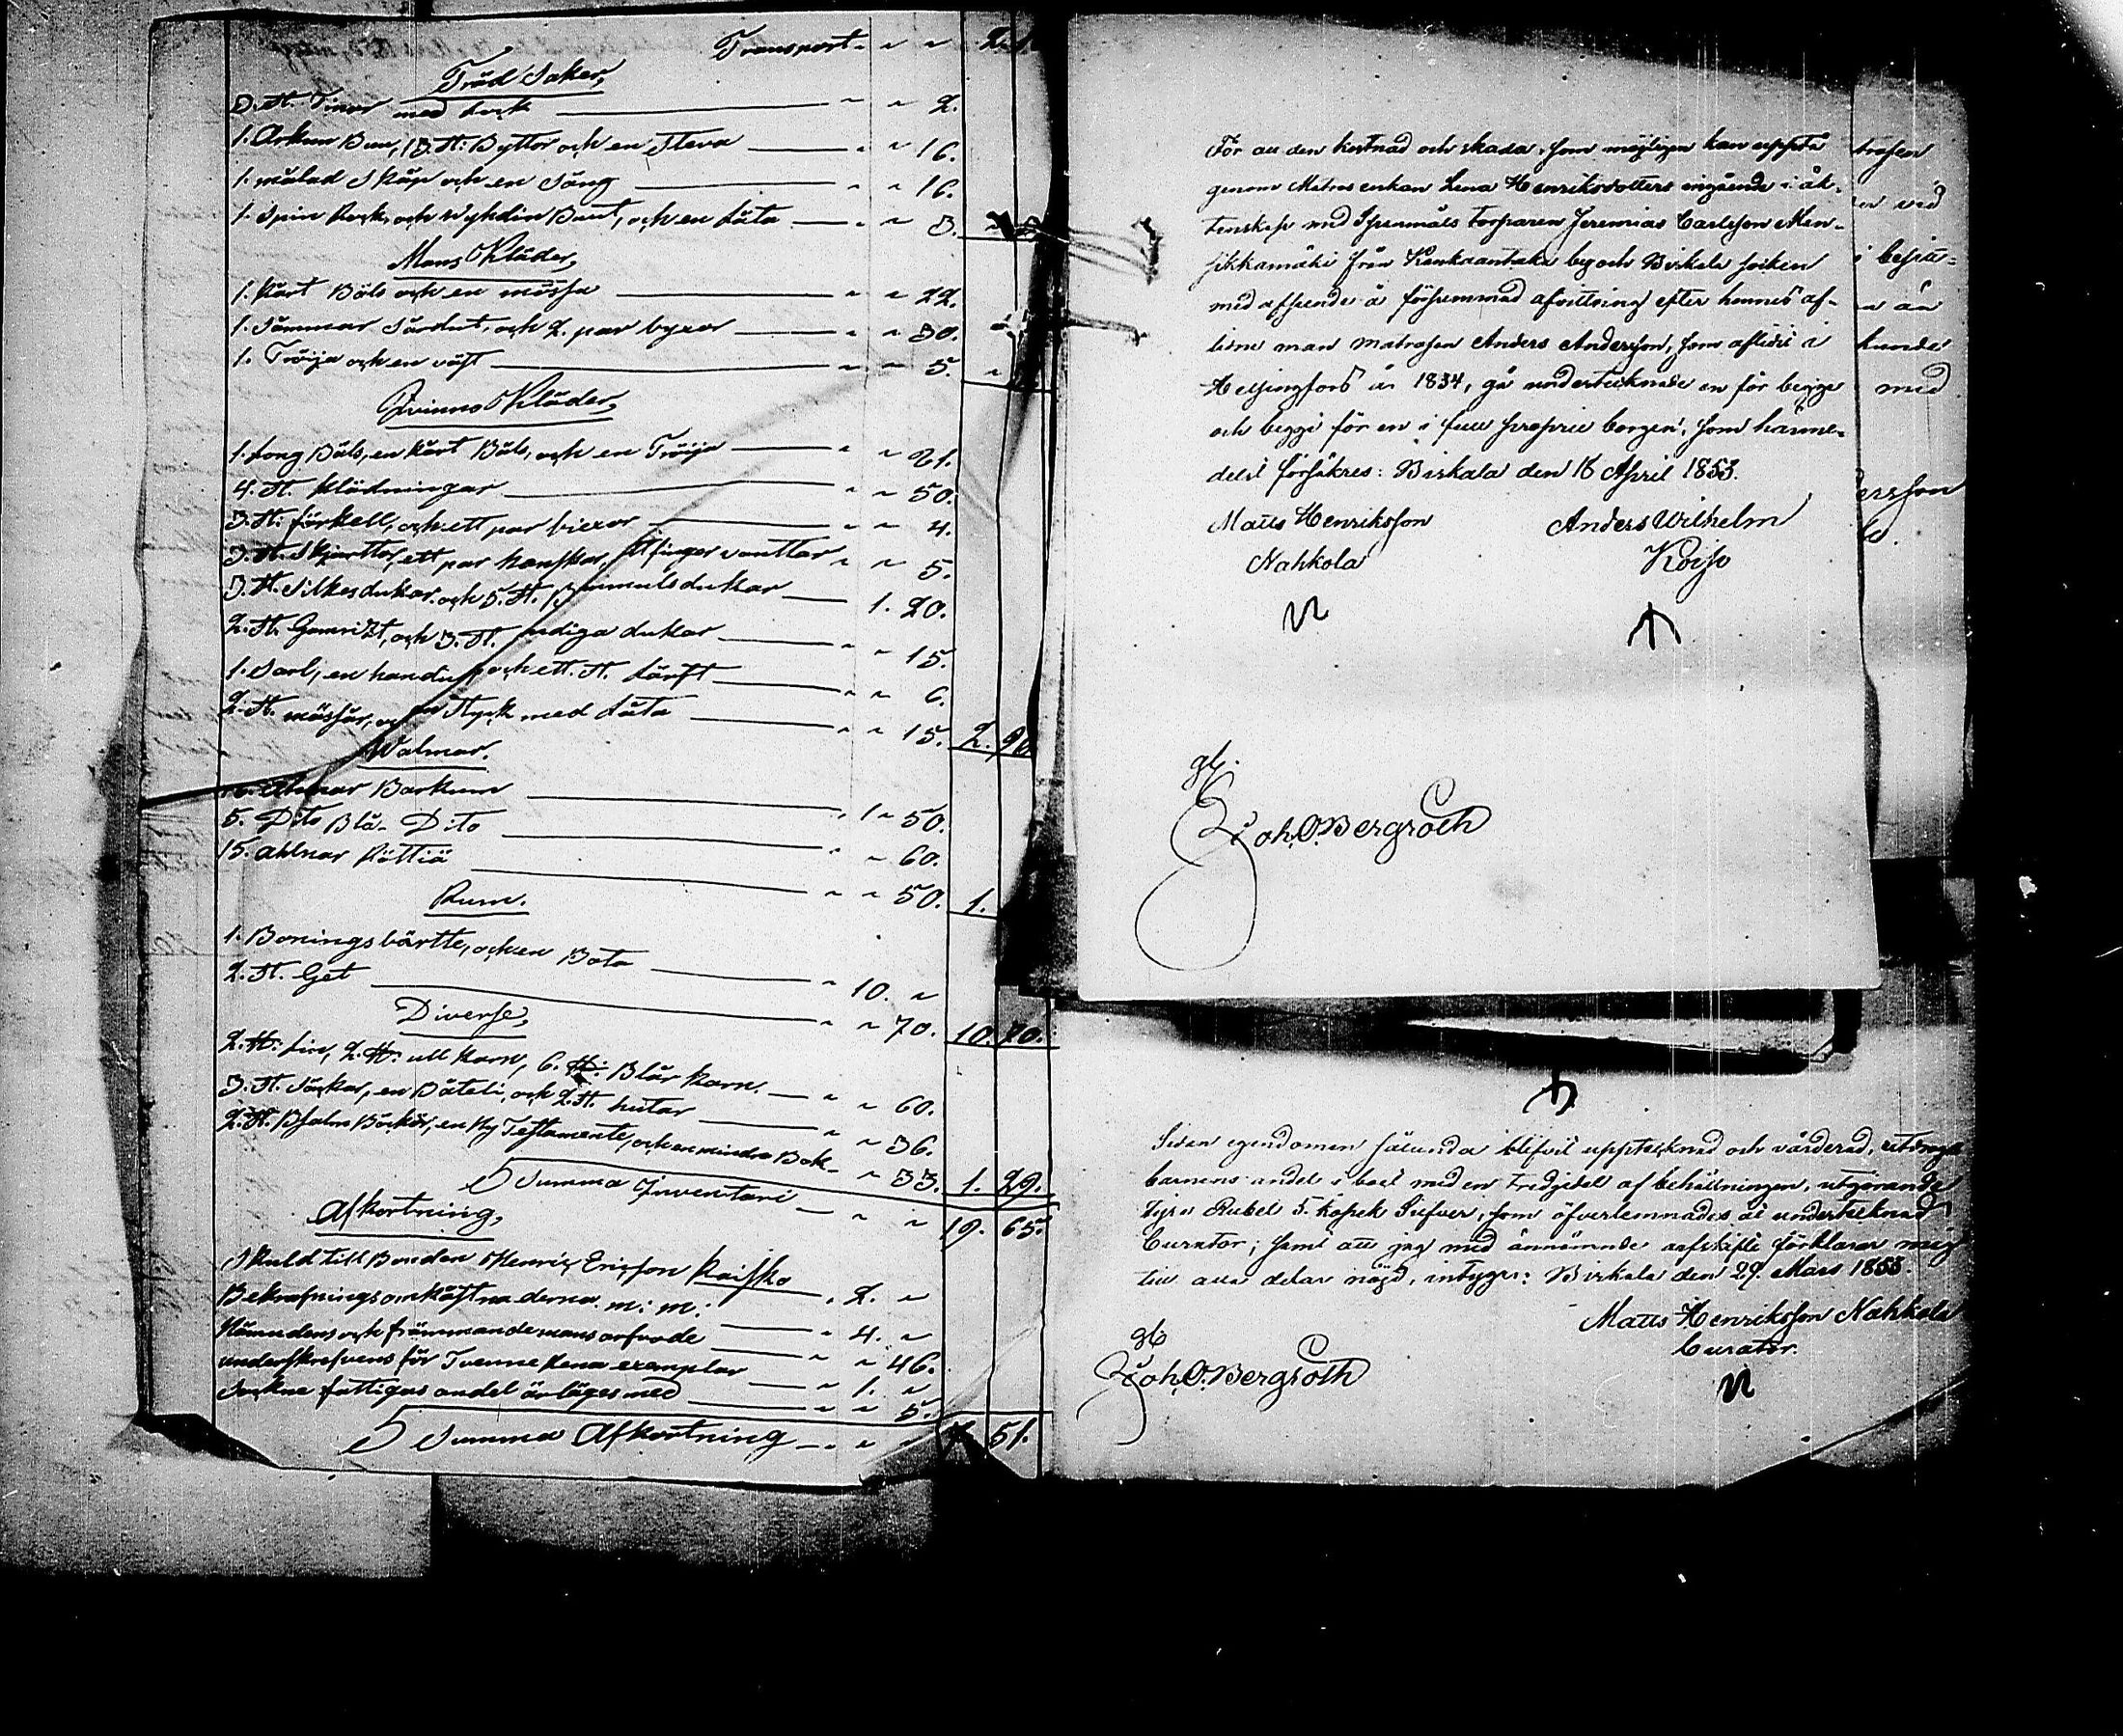 Transport „ „
Träd Saker,
3. st. Tinor med Lock „ „ 2.
1. Arkun Bun, 13. st: Byttor och en Steva „ „ 16.
1. målad Skåp och en Säng „ „ 16.
1. Spin Rock, och en Låta „ „ 3.
Mans Kläder,
1. kårt Päls och en mössa „ „ 22.
1. Sommar Sårdut, och 2. par byxor „ „ 30.
1. Tröija och en väst „ „ 5.
Qvinno Kläder,
1. Long Päls, en kårt Päls, och en Tröija „ „ 21.
4. st. Klädningar „ „ 50.
3. st: förkell, och ett par biexor „ „ 4.
3. st. Skjorttor, ett par hanskar, st finger vanttar „ „ 5.
3. st. Silkesdukar och 5. st. Bommulsdukar 1. 20.
2. st. och 3. st. dukar „ „ 15.
1. Sarl, en handuk och ett. st. Lärft „ „ 6.
2. st. mössor, och Styck med Låta „ „ 15. 2. 90.
Walmar.
Alnar Barkum „ 1 „ 50.
5. Dito Blå Dito „ „ 60.
15. alnar Köttiä „ „ 50. 1.
Rum.
1. Boningsbärtte, och en Bota „ 10. „
2. st. Get „ „ 70. 10. 70.
Diverse,
2. ℔: Lin, 2. ℔: ull Karn, 6. ℔: Blår Karn. „ „ 60.
3. st. Säckar, en Båteli, och 2. st. hutar „ „ 36.
2. st. Psalm Böcker, en Ny Testamente, och en mindre Bok „ „ 33. 1. 29.
Summa Inventari „ „ 19. 65.
Afkortning,
Skuld till Bonden Henric Ericsson Kaisko „ 2. „
Bekrafningsomkåstnaderna m: m: „ 4. „
Nämndens och främmande mans arfvode „ „ 46.
underskrefvens för Tvenne Rena exemplar „ 1. „
Sockne fattigas andel ärläges med „ „ 5.
Summa Afkortning „ „ 7. 51.
För all den kostnad och skada, som möjligen kan uppstå
genom Matros enkan Lena Henriksdotters ingående i äk-
tenskap med Spanmåls Torparen Jeremias Carlsson Men-
sikkamäki från Kankaantaka by och Birkala socken
med afseende å försummad afvittring efter hennes af-
lidne man matrosen Anders Andersson, som aflidit i
Helsingfors år 1834, gå undertecknade en för begge
och begge för en i full proprie borgen, som härme-
delst försäkres: Birkala den 16 April 1853.
Matts Henriksson Anders Wilhelm
Nahkola Koiso
gb.
Joh. O. Bergroth
Sedan egendomen sålunda blifvit upptecknad och värderad, utdrogs
barnens andel i boet med en Tredjedel af behållningen, utgörande
Fyra Rubel 5. kopek Silfver, som öfverlemnades åt undertecknad
Curator; samt att jag med ännämnde arfskifte förklarar mig
till alla delar nöjd, intygar: Birkala den 29. Mars 1855.
Matts Henriksson Nahkola
Curator.
gb
Joh. O. Bergroth